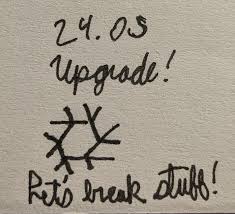 24.05
Upgrade!
Let's break stuff!